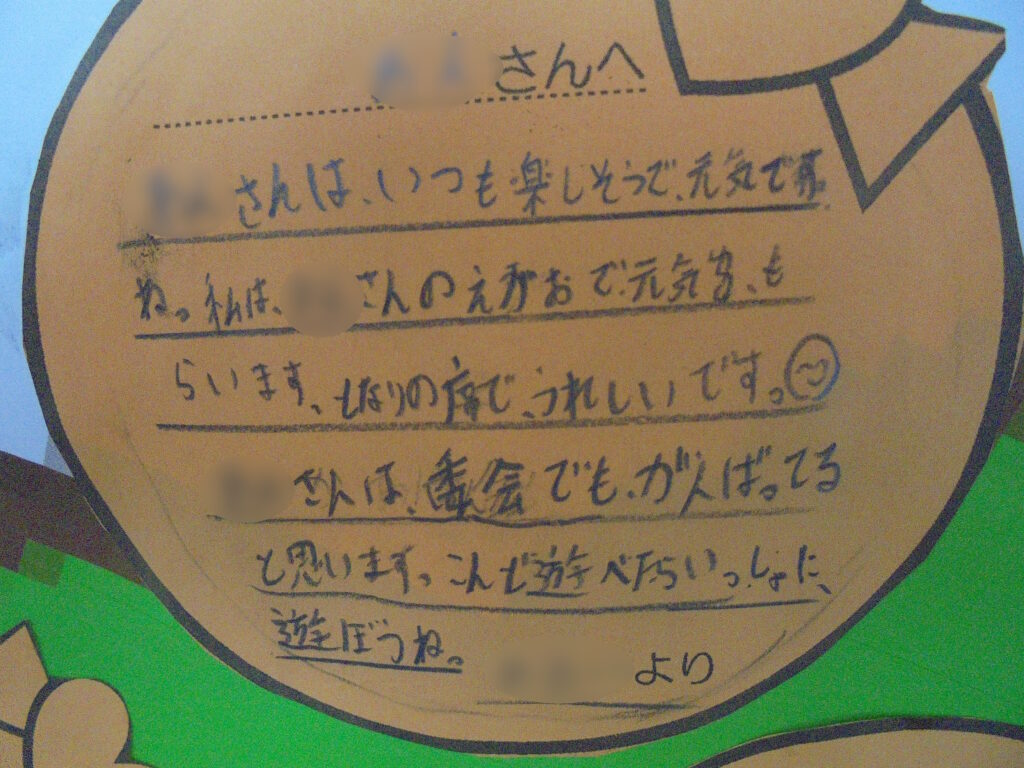 さんへ
さんは、いつも楽しそうで、元気です
ね。私は、さんのえがおで、元気を、も
らいます、となりの席で、うれしいです。
さんは、委会でも、がんばってる
と思います。こんど遊べたらいっしょに、
遊ぼうね。
より